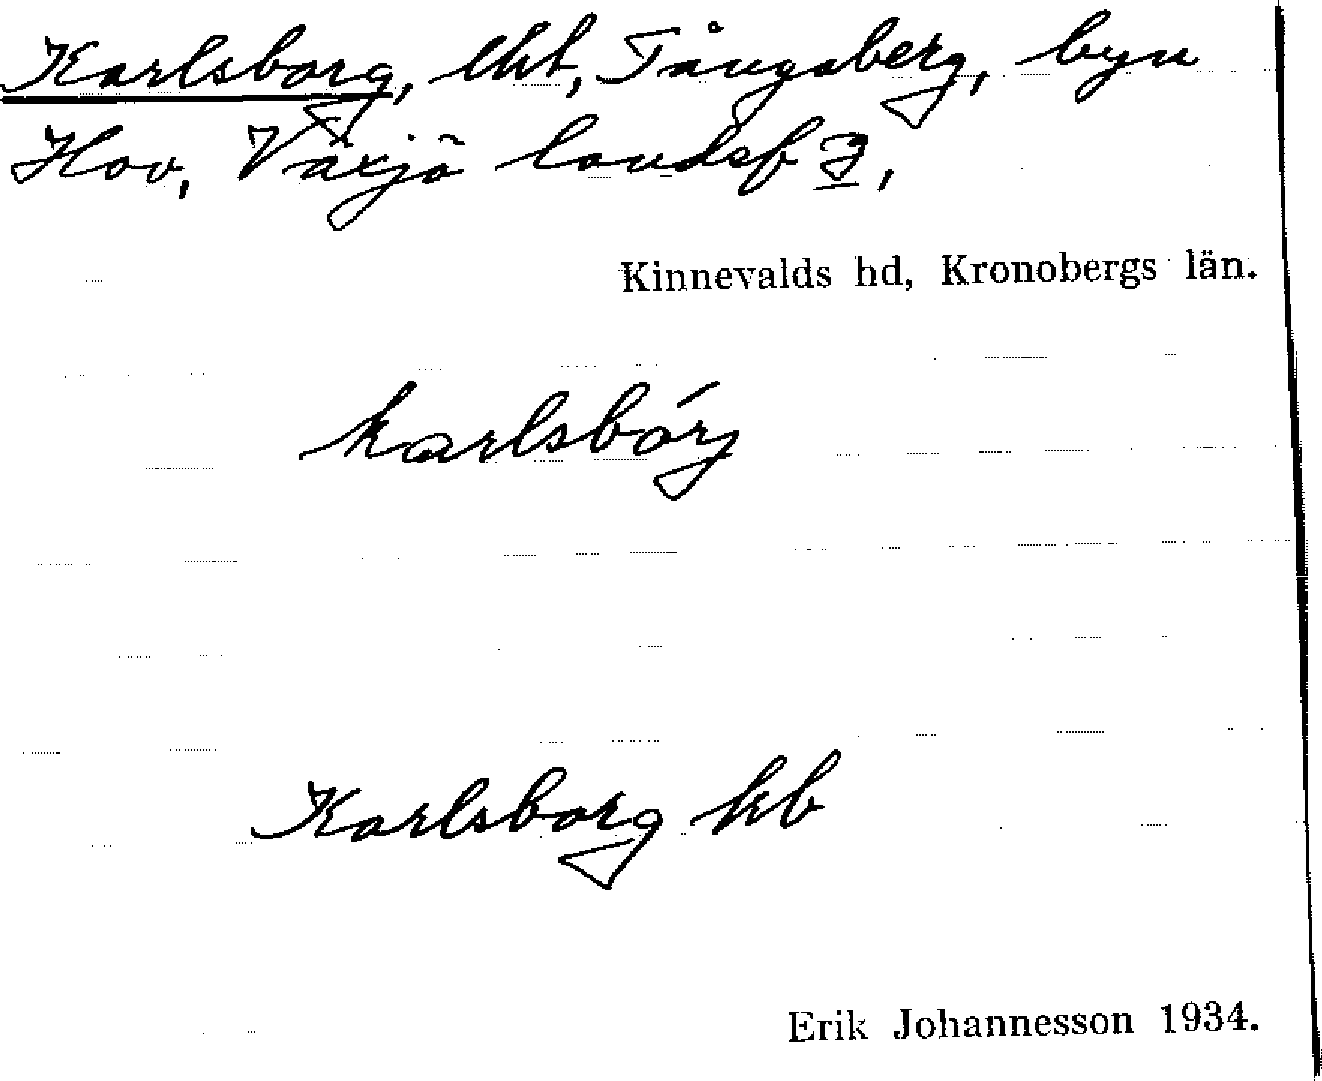 Karlsborg, lht, Tångaberg, byn
Hov, Växjö landsf
Kinnevalds hd, Kronobergs län.
karlsbórj
Karlsborg hb
Erik Johannesson 1934.